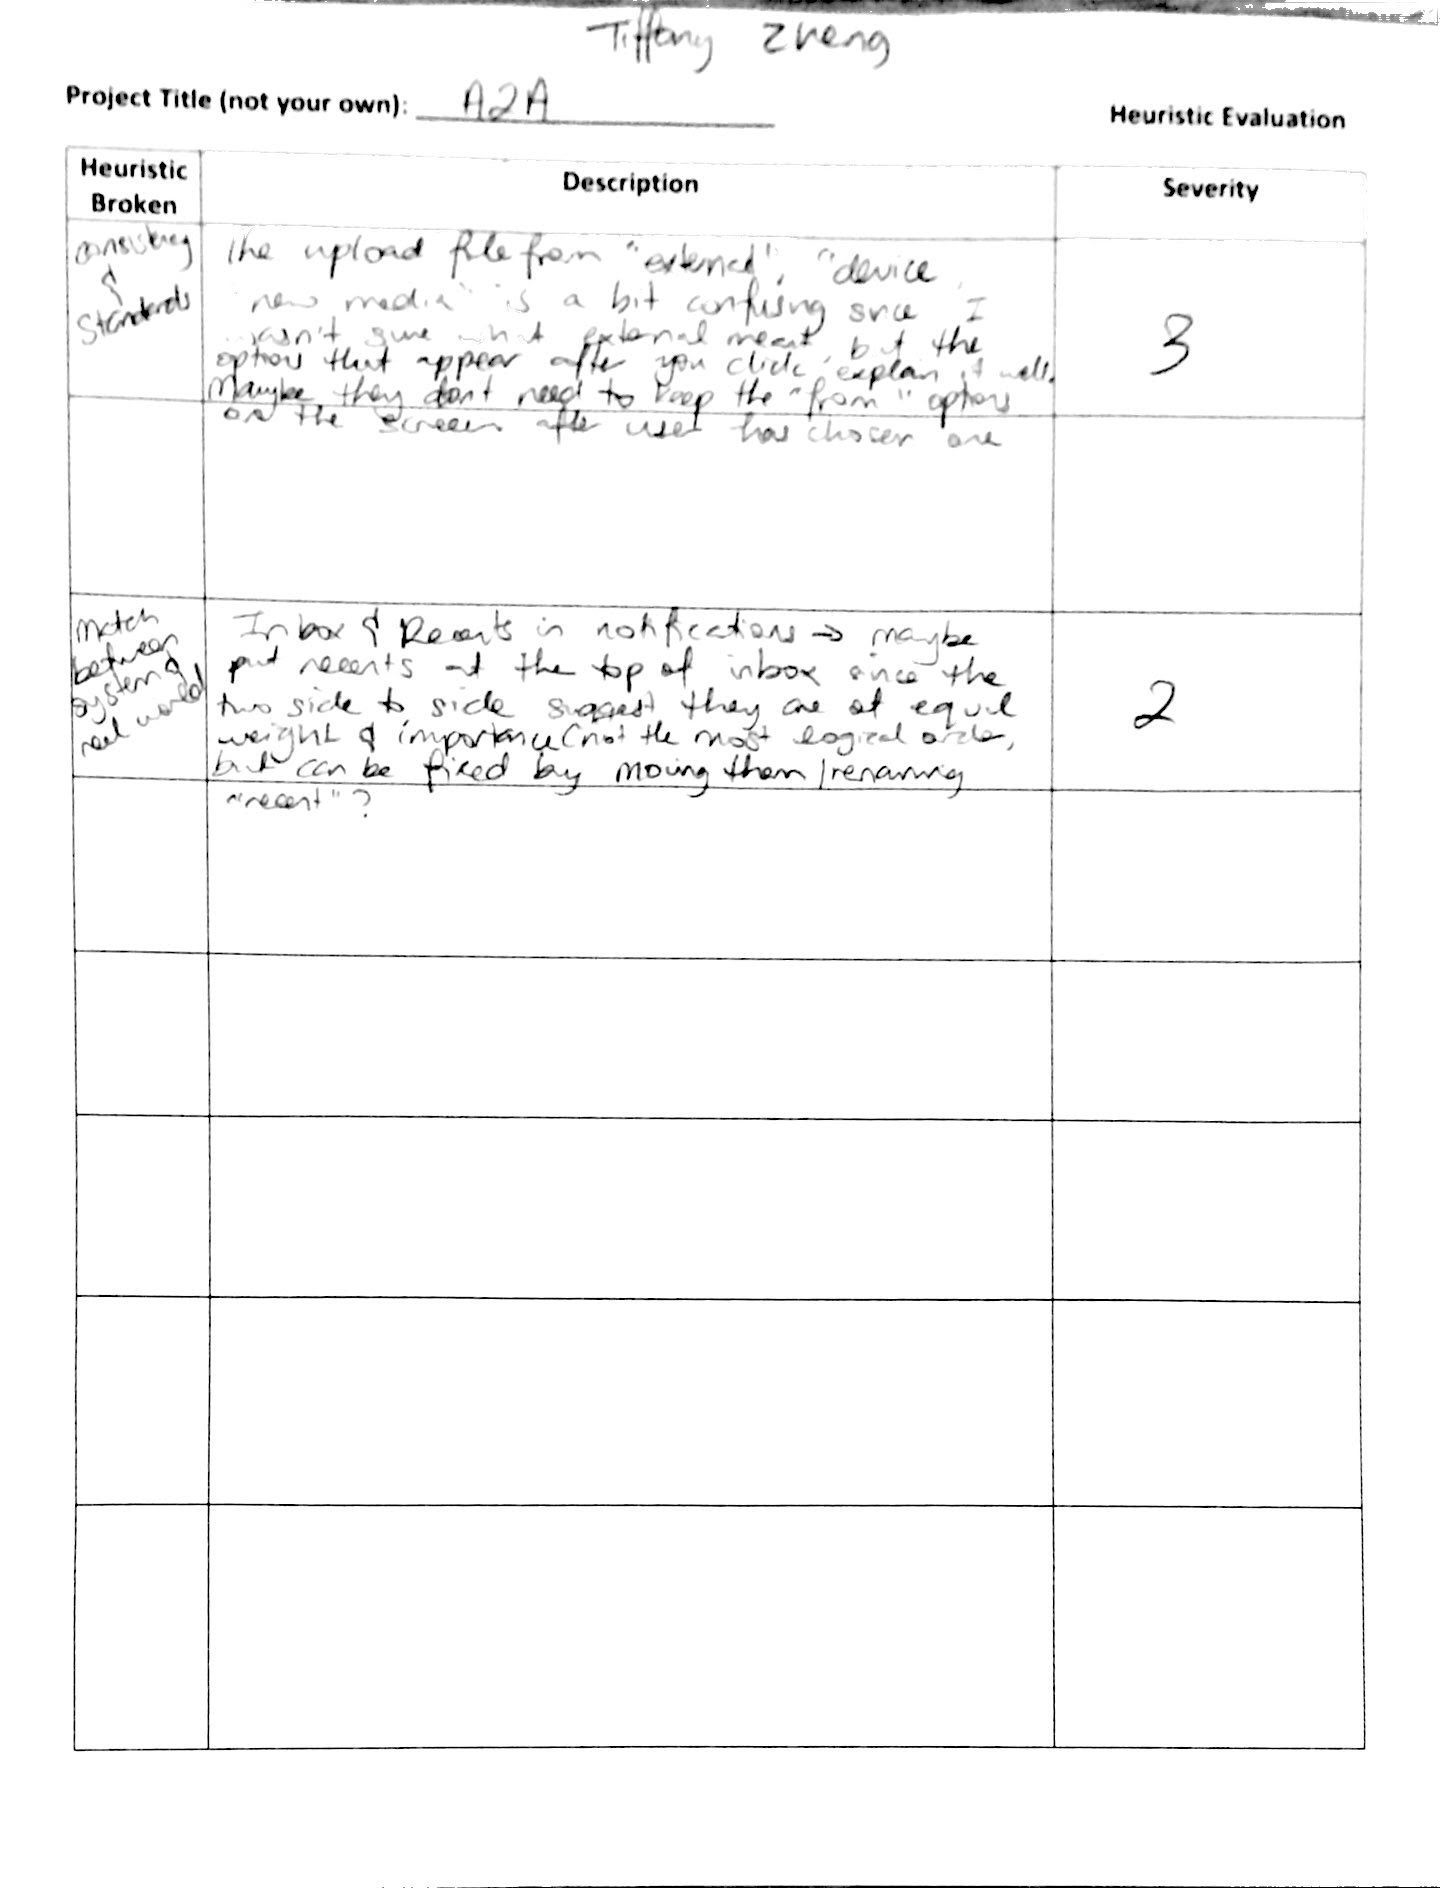 Tiffany Zheng
Project Title (not your own): A2A
Heuristic Evaluation
Heuristic Broken
Description
Severity
Consistency
&
Standards
The upload file from "external", "device,
new media" is a bit confusing since I
wasn't sure what external meant but the
options that appear after you click explain it well.
Maybe they don't need to keep the "from" options
on the screen after user has chosen one
3
Match
between
system &
real world
Inbox & Recents in notifications → maybe
put recents at the top of inbox since the
two side to side suggest they are of equal
weight & importance (not the most logical order,
but can be fixed by moving them / renaming
"recent"?
2